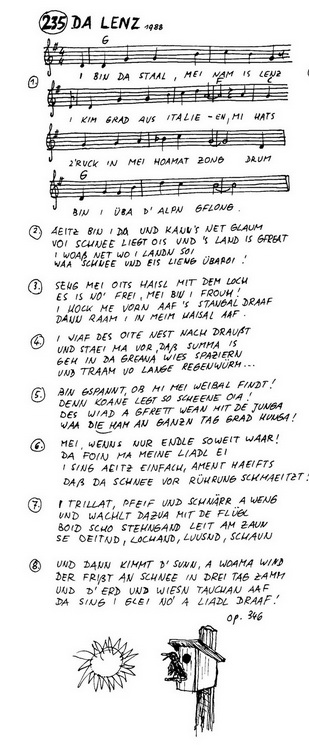 235 DA LENZ 1988
G
1. I BIN DA STAAL, MEI NAM IS LENZ
F G
I KIM GRAD AUS ITALIE-EN, MI HATS
Z'RUCK IN MEI HOAMAT ZONG DRUM
G
BIN I ÜBA D' ALPN GFLONG.
2 AEITZ BIN I DA UND KANN'S NET GLAUM
VOI SCHNEE LIEGT OIS UND 'S LAND IS GFREAT
I WOAß NET WO I LANDN SOI
WAA SCHNEE UND EIS LIENG ÜBAROI!
3. SEHG MEI OITS HAISL MIT DEM LOCH
ES IS NO' FREI, MEI BIN I FROUH!
I HOCK ME VORN AAF 'S STANGAL DRAAF
DANN RAAM I IN MEIM HAISAL AAF.
4. I WIAF DES OITE NEST NACH DRAUßT
UND STAEI MA VOR, DAß SUMMA IS
GEH IN DA GREANA WIES SPAZIERN
UND TRAAM VO LANGE REGENWÜRM...
5. BIN GSPANNT, OB MI MEI WEIBAL FINDT!
DENN KOANE LEGT SO SCHEENE OIA!
DES WIAD A GFRETT WEAN MIT DE JUNGA
WAA DIE HAM AN GANZN TAG GRAD HUNGA!
6 MEI, WENNS NUR ENDLE SOWEIT WAAR!
DA FOIN MA MEINE LIADL EI
I SING AEITZ EINFACH, AMENT HAEIFTS
DAß DA SCHNEE VOR RÜHRUNG SCHMAEITZT!
7 I TRILLAT, PFEIF UND SCHNÄRR A WENG
UND WACHLT DAZUA MIT DE FLÜGL
BOID SCHO STEHNGAND LEIT AM ZAUN
SE DEITND, LOCHAND, LUUSND, SCHAUN
8 UND DANN KIMMT D' SUNN, A WOAMA WIND
DER FRIßT AN SCHNEE IN DREI TAG ZAMM
UND D' ERD UND WIESN TAUCHAN AAF
DA SING I GLEI NO' A LIADL DRAAF!
OP. 346